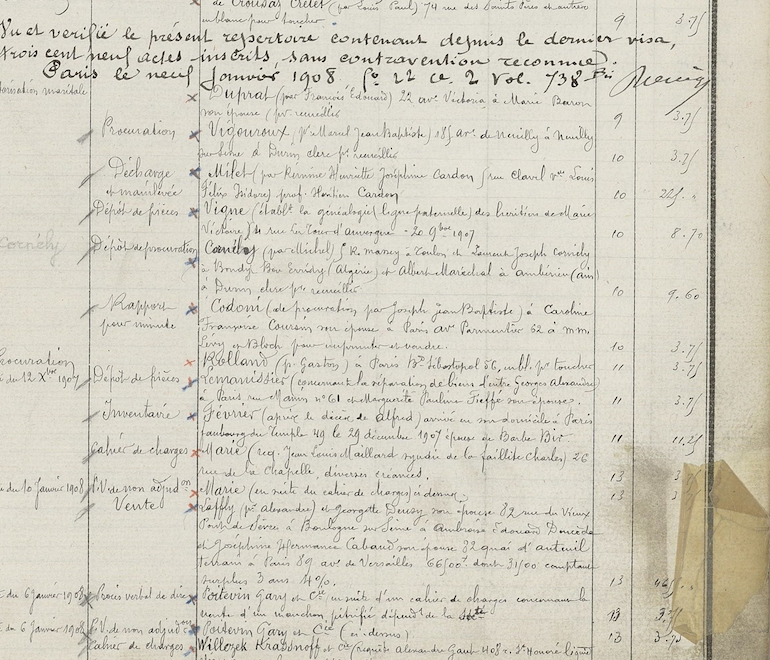 de Crousaz Cretet (par Louis Paul) 79 rue des Saints Pères et autres
mblanc pour toucher 9 3.75
Vu et verifié le présent repertoire contenant depuis le dernier visa,
trois cent neuf actes inscrits, sans contravention reconnue.
Paris le neuf Janvier 1908 fo 22 Ce. 2 Vol. 738
torisation maritale Duprat (par François Edouard) 22 av. Victoria à Marie Baron
son épouse (pr recueillir 9 3.75
Procuration Vigouroux, pr Marcel Jean Baptiste) 185 av. de Neuilly à Neuilly
sur Seine à Durin clerc pr recueillir 10 3.75
Décharge Milet (par Hermine Henriette Joséphine Cardon rue Clavel vve Louis
et mainlevée Félix Isidore) prof. Cardon 10 225
Dépôt de pièces Vigne (établt la généalogie (ligne paternelle) des héritiers de Marie
Victoire) 4 rue La Tour d'Auvergne - 20 9bre 1907 10 8.70
Cornély Dépôt de procuration Cornély (par Michel) r. massey à Toulon et Laurent Joseph Cornély
à Bordj Bou Erridj (Algérie) et Albert Maréchal à Ambérieu (ain)
à Durin clerc pr recueillir 10 9.60
Rapport Codoni (de procuration par Joseph Jean Baptiste) à Caroline
pour minute Françoise Coursin son épouse à Paris av Parmentier 62 à mm.
Levy et Bloch pour emprunter et vendre. 10 3.75
Procuration Rolland (pr Gaston) à Paris Bd Sébastopol 56, mbl. pr toucher 11 3.75
du 12 Xbre 1907 Dépôt de pièces Lemanissier (concernant la séparation de biens d'entre Georges Alexandre)
à Paris rue Mains no 61 et Marguerite Pauline Fieffé son épouse. 11 3.75
Inventaire Février (après le décès de Alfred) arrivé en son domicile à Paris
faubourg du Temple 49 le 29 décembre 1907 époux de Barbe Bit. 11 11.25
Cahier de charges Marie (req. Jean Louis Maillard syndic de la faillite Charles) 26
rue de la Chapelle, diverses créances. 13 3
du 10 Janvier 1908 P.V. de non adjudon Marie (en suite du cahier de charges ci dessus. 13 3
Vente Laffly (pr Alexandre) et Georgette Deuzy son épouse 82 rue du Vieux
Pont de Sèvres à Boulogne sur Seine à Ambroise Edouard
et Joséphine Hermance Cabaud son épouse 32 quai d'auteuil
terrain à Paris 89 av. de Versailles. 66500f dont 31500 comptant
surplus 3 ans 4%. 13
du 6 Janvier 1908 Procès verbal de dire Poitevin Gary et Cie en suite d'un cahier de charges concernant la
vente d'un manchon, pétrifié dépendt de la Sté 13 3.75
du 6 Janvier 1908 P.V. de non adjudon Poitevin Gary et Cie (ci-dessus) 13 3.75
Cahier de charges Willozek Krassnoff et Cie (requête Alexandre Gaut 408 r. St Honoré